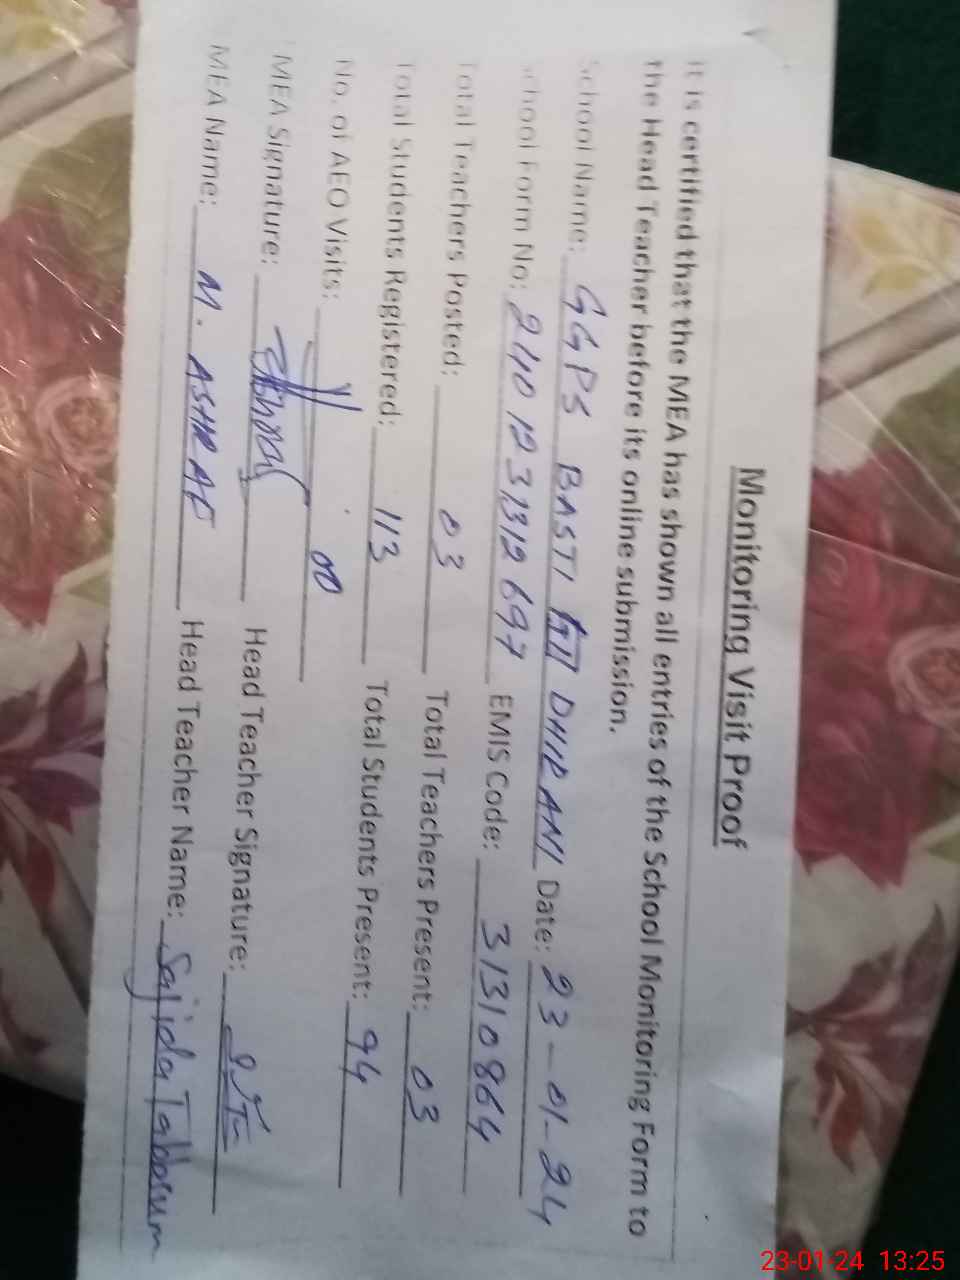 Monitoring Visit Proof
It is certified that the MEA has shown all entries of the School Monitoring Form to
the Head Teacher before its online submission.
School Name: GGPS BASTI DHIRANI Date: 23-01-24
School Form No: 2401231312697 EMIS Code: 31310864
Total Teachers Posted: 03 Total Teachers Present: 03
Total Students Registered: 113 Total Students Present: 94
No. of AEO Visits: 00
MEA Signature: Head Teacher Signature:
MEA Name: M. ASHRAF Head Teacher Name: Sajida Tabbsum
23-01-24 13:25